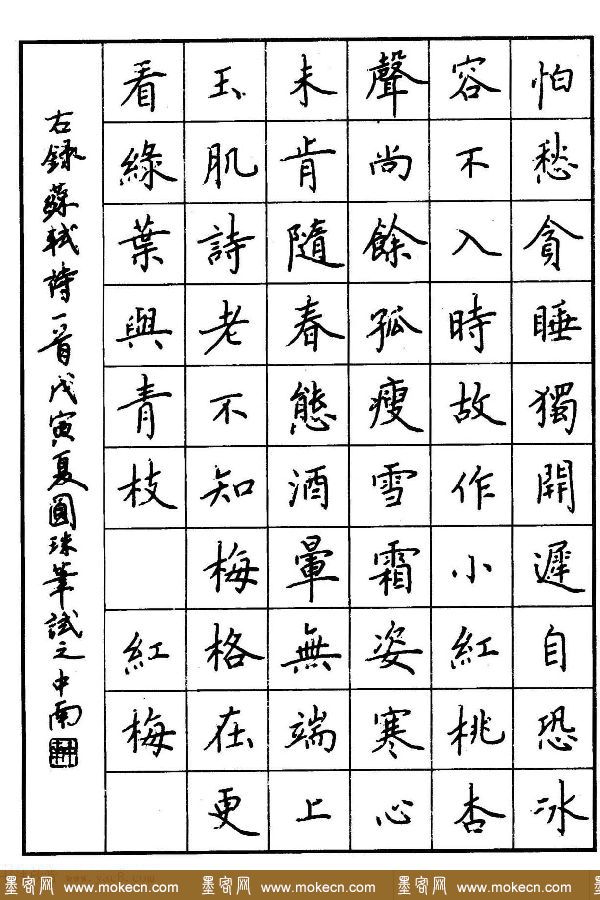 怕愁貪睡獨開遲自恐冰
容不入時故作小紅桃杏
聲尚餘孤瘦雪霜姿寒心
未肯隨春態酒暈無端上
玉肌詩老不知梅格在更
看綠葉與青枝 紅梅
右錄蘇軾詩一首戊寅夏圓珠筆試之中南
墨客网 www.mokecn.com 墨客网 www.mokecn.com 墨客网 www.mokecn.com